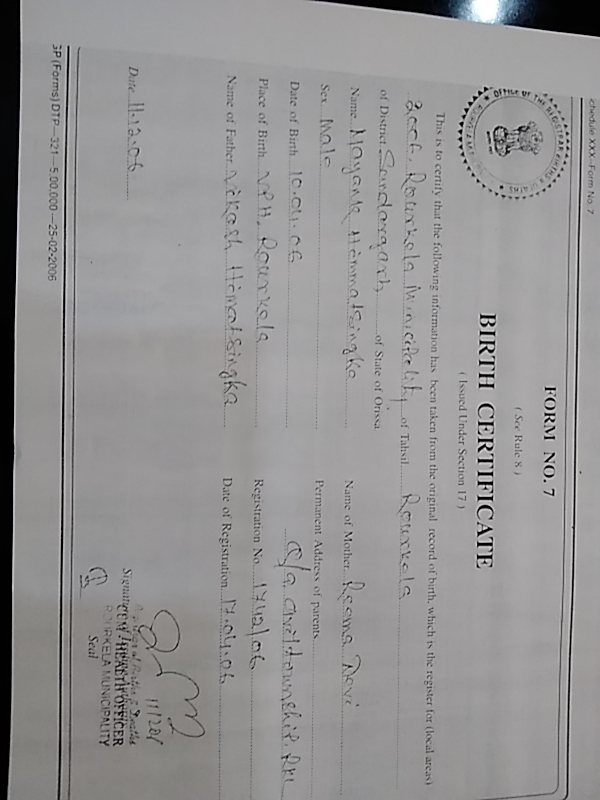 chedule XXX–Form No. 7
FORM NO. 7
( See Rule 8 )
BIRTH CERTIFICATE
( Issued Under Section 17 )
This is to certify that the following information has been taken from the original record of birth, which is the register for (local areas)
2006, Rourkela Municipality of Tahsil Rourkela
of District Sundargarh of State of Orissa
Name Mayank Himmatsingka
Sex Male
Date of Birth 10.04.06
Place of Birth VPH, Rourkela
Name of Father Vikash Himatsingka
Name of Mother Reema Devi
Permanent Address of parents
Civil township, Rkl
Registration No. 1742/06
Date of Registration 17.04.06
Date 11.12.06
CUM HEALTH OFFICER
ROURKELA MUNICIPALITY
Seal
GP (Forms) DTP—321—5,00,000—25-02-2006